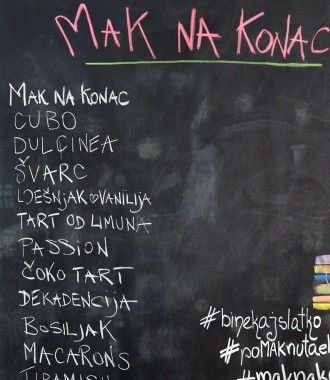 MAK NA KONAC
MAK NA KONAC
CUBO
DULCINEA
ŠVARC
LJEŠNJAK♡VANILIJA
TART OD LIMUNA
PASSION
ČOKO TART
DEKADENCIJA
BOSILJAK
MACARONS
TIRAMISU
#binekajslatko
#poMAKnutael
#maknako